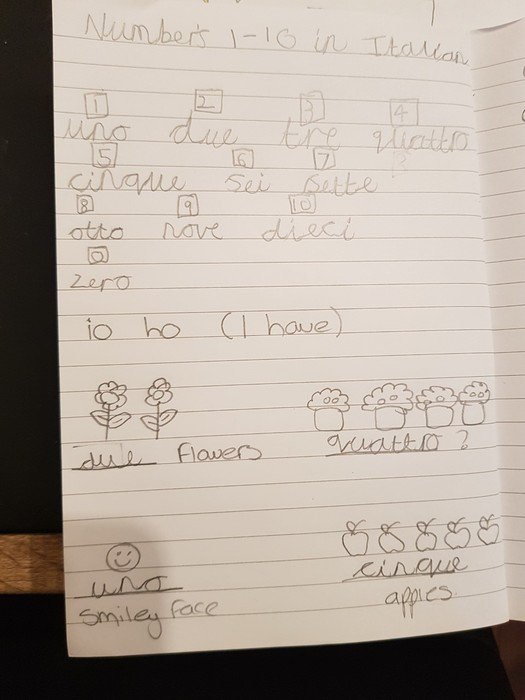 Numbers 1-10 in Italian
1 2 3 4
uno due tre quattro
5 6 7 ?
cinque sei sette
8 9 10
otto nove dieci
0
zero
io ho (I have)
due flowers quattro ?
uno cinque
smiley face apples